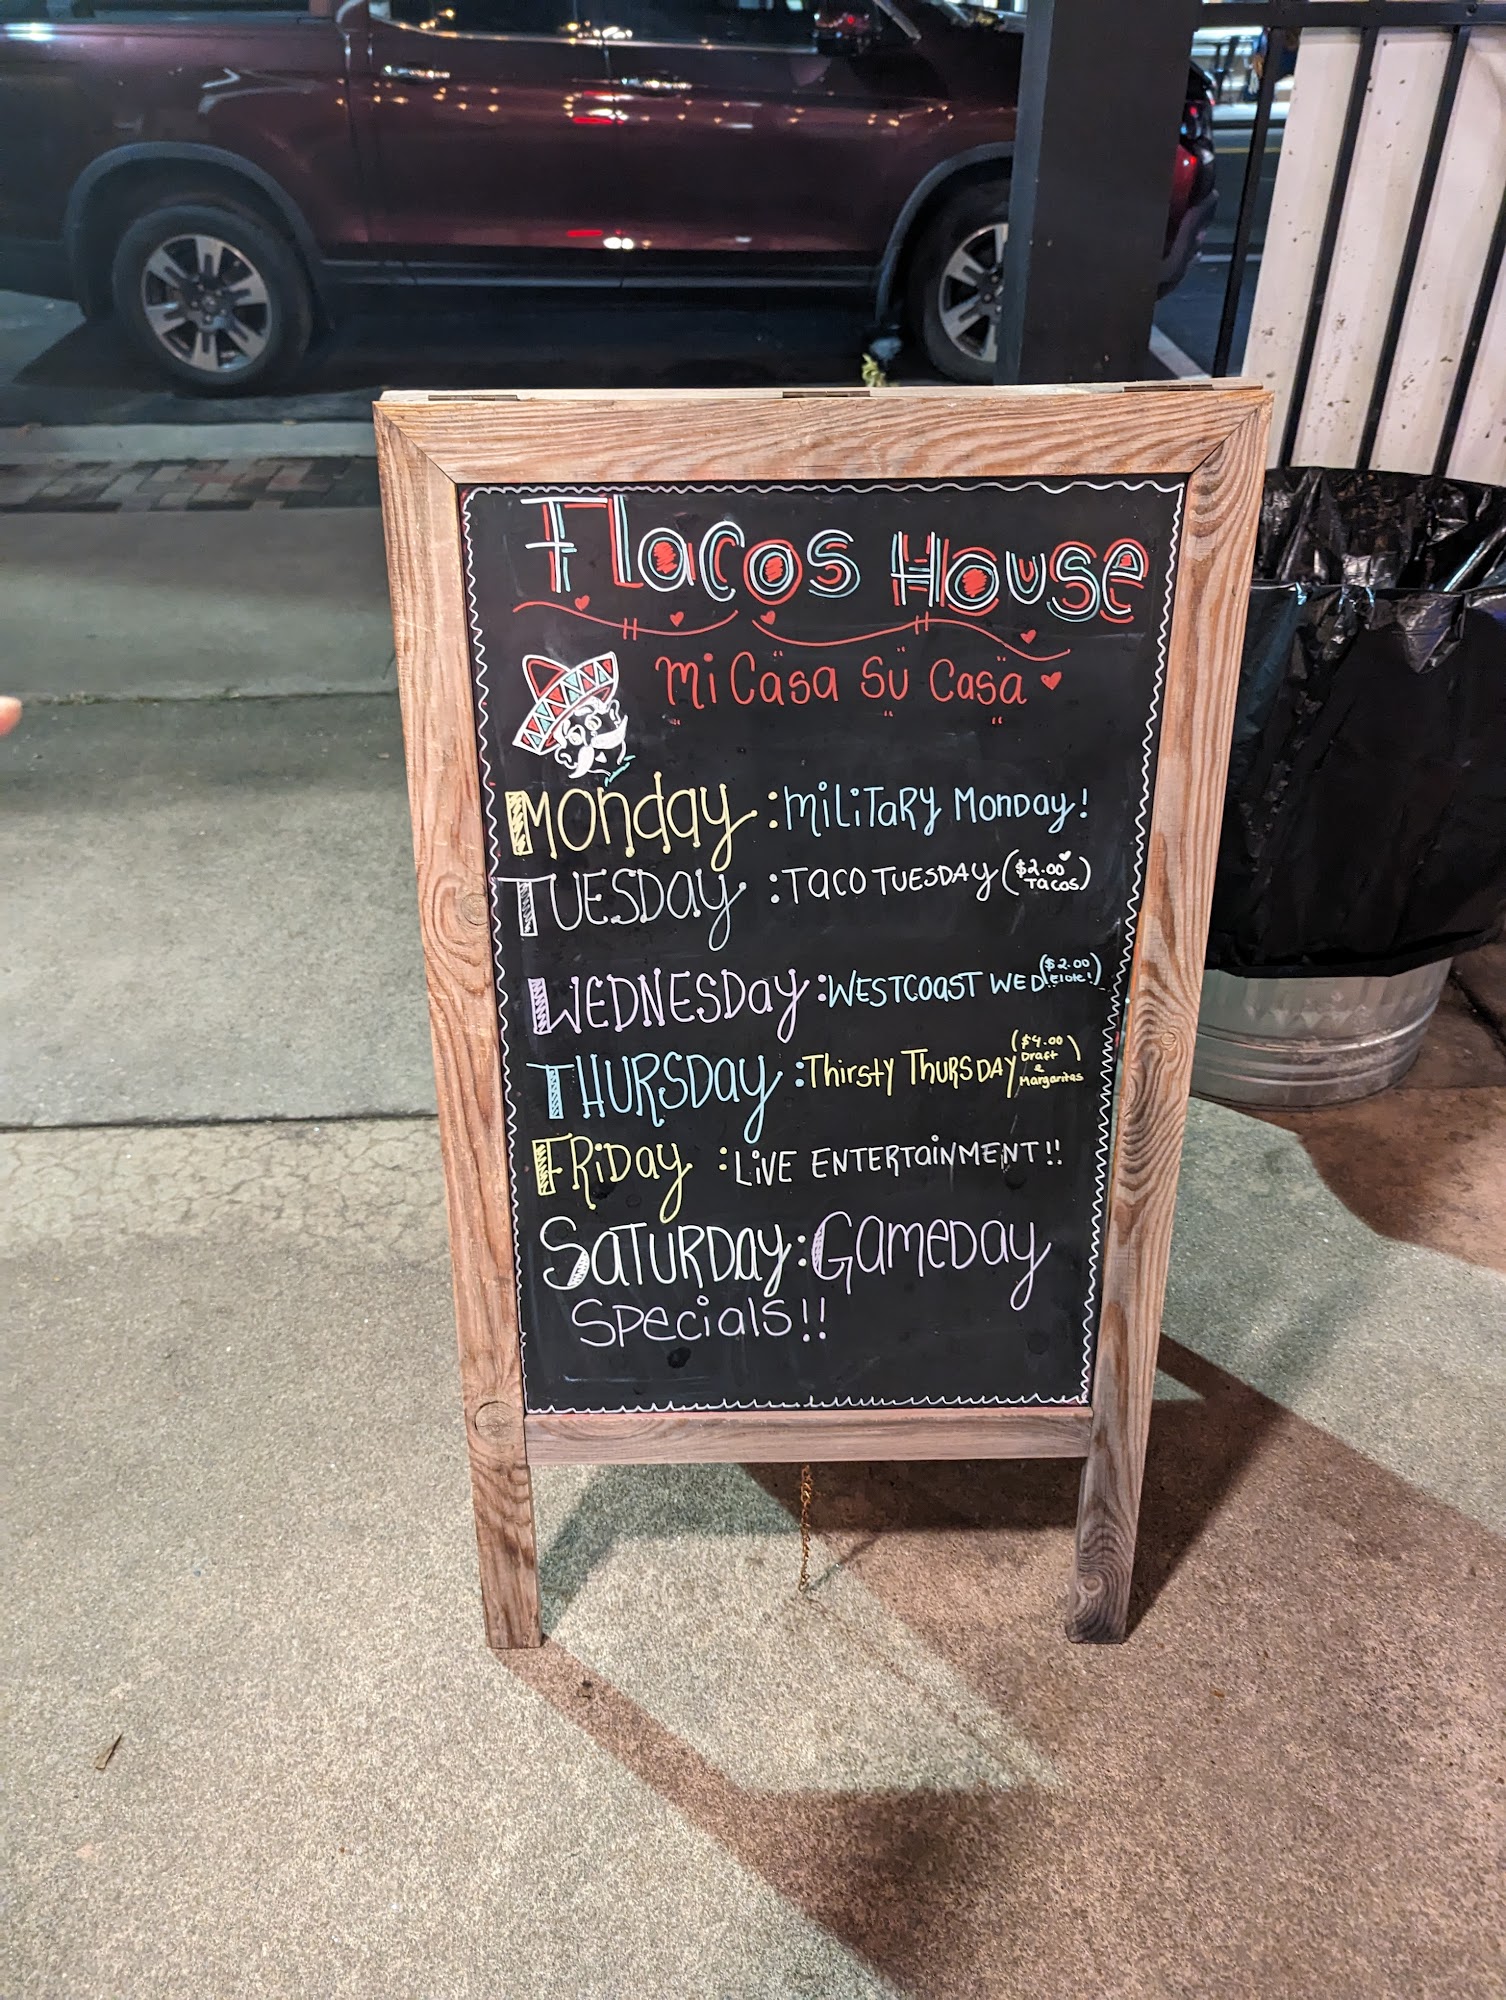 Flacos House
Mi Casa Su Casa
Monday : Military Monday!
Tuesday : Taco Tuesday ($2.00 Tacos)
Wednesday : Westcoast Wed ($2.00 Elote!)
Thursday : Thirsty Thursday ($4.00 Draft & Margaritas)
Friday : Live Entertainment!!
Saturday : Gameday
Specials!!